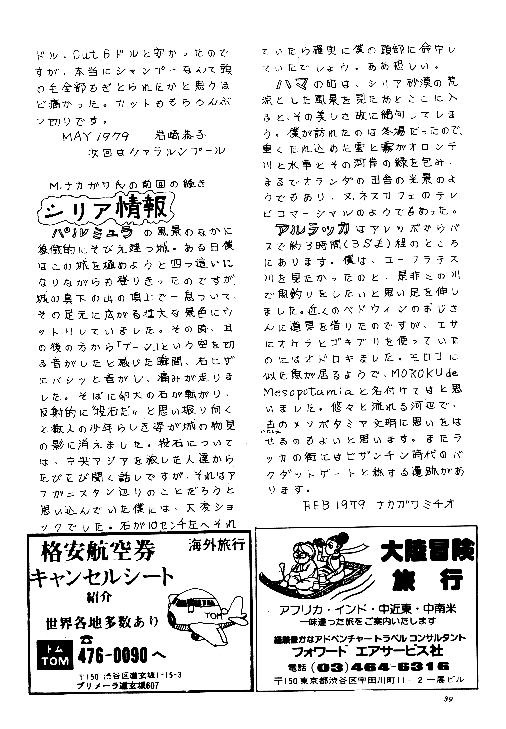 ドル. Cut 6ドルと安かったので
すが、本当にシャンプーなんて頭
の毛全部もぎとられたかと思うほ
ど痛かった。カットもそうらんぶ
ん切りです。
MAY 1979 岩崎
次回はクアラルンプール
M.ナカガワ氏の前回の続き
シリア情報
パルミュラ の風景のなかに
象徴的にそびえ建つ城。ある日僕
はこの城を極めようと四つ這いに
なりながらも登りきったのですが
城の真下の山の頂上で一息ついて、
その足元に広がる壮大な景色にウ
ットリしていました。その時、耳
の後の方から「ブーン」という空を切
る音がしたと感じた瞬間、右ヒザ
にバシッと音がし、痛みが走りま
した。そばに卵大の石が転がり、
反射的に"投石だ"と思い振り向く
と数人の少年らしき姿が城の物見
の影に消えました。投石について
は、中央アジアを旅した人達から
たびたび聞く話しですが、それはア
フガニスタン辺りのことだろうと
思い込んでいた僕には、大変ショ
ックでした。石が10センチ左へそれ
ていたら確実に僕の頭部に命中し
ていたでしょう。ああ怪しい。
ハマ の町は、シリア砂漠の荒
涼とした風景を見たあとここに入
ると、その美しさ故に錯句してしま
う。僕が訪れたのは冬場だったので、
重くたれ込めた雲と霧がオロンテ
川と水車とその河岸の緑を包み、
まるでオランダの田舎の光景のよ
うでもあり、又ネスカフェのテレ
ビコマーシャルのようでもあった。
アルラッカ はアレッポからバ
スで約3時間(3S£)程のところ
にあります。僕は、ユーフラテス
川を見たかったのと、是非この川
で魚釣りをしたいと思い足を伸し
ました。近くのベドウィンのおじさ
んに道具を借りたのですが、エサ
にオケラとゴキブリを使っていた
のにはオドロキました。モロコに
似た魚が居るようで、MOROKU de
Mesopotamia と名付けてはと思
いました。悠々と流れる河辺で、
真のメソポタミア文明に思いをは
せるのもよいと思います。またラ
ッカの街にはビザンチン時代のバ
クダットゲートと称する遺跡があ
ります。
FEB 1979 ナカガワミチオ
格安航空券 海外旅行
キャンセルシート
紹介
世界各地多数あり
TOM
トム
TOM
☎
476-0090へ
〒150 渋谷区道玄坂1-15-3
プリメーラ道玄坂607
大陸冒険
旅行
アフリカ・インド・中近東・中南米
一味違った旅をご案内いたします
経験豊かなアドベンチャートラベル コンサルタント
フォワード エアサービス社
電話 (03) 464-6316
〒150 東京都渋谷区宇田川町11-2 一展ビル
39